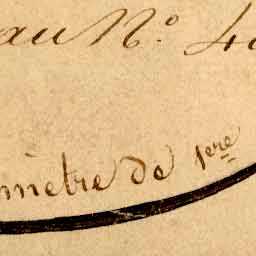 au N.º 4
mètre de 1ere